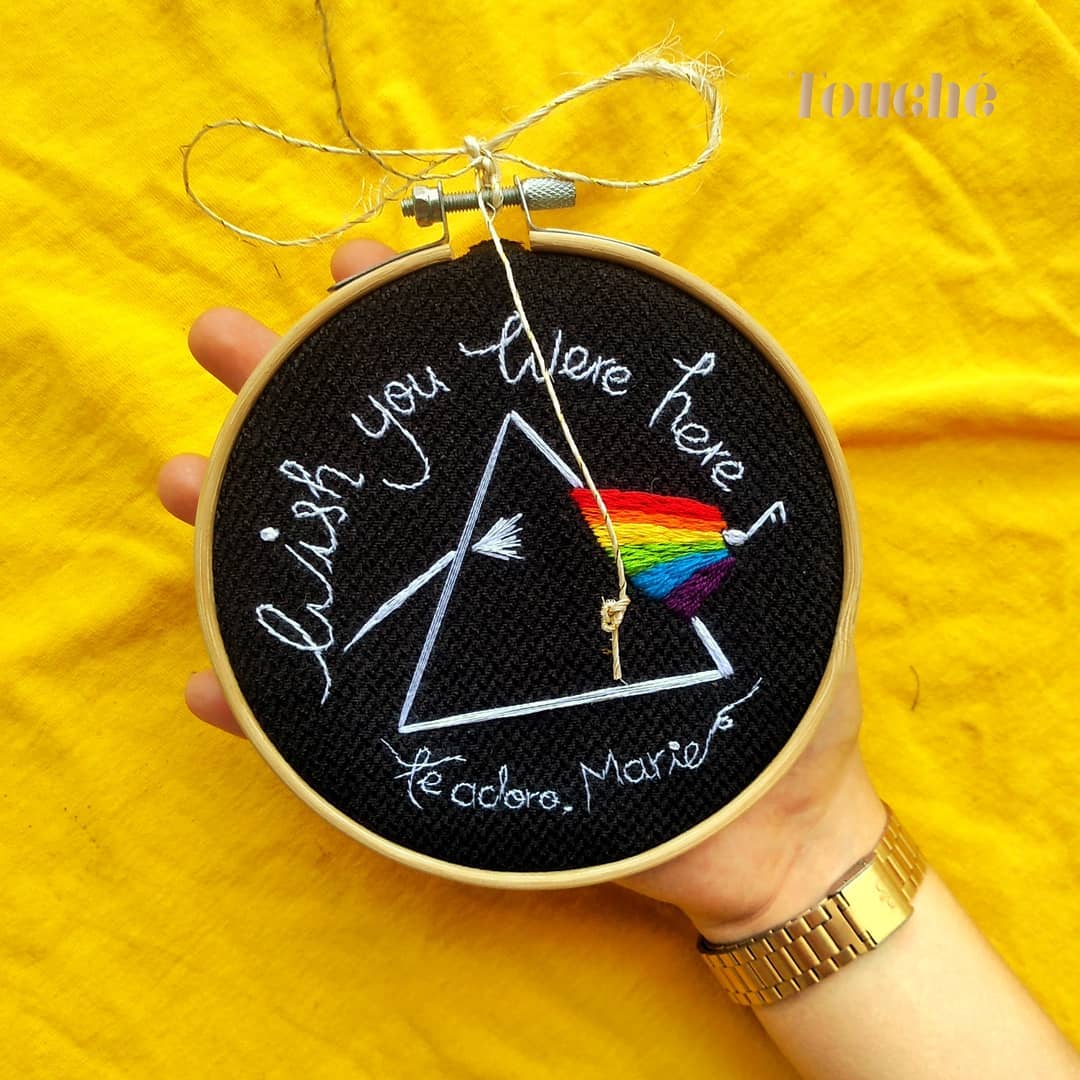 Touché
Wish you Were here
Te adoro, Marie